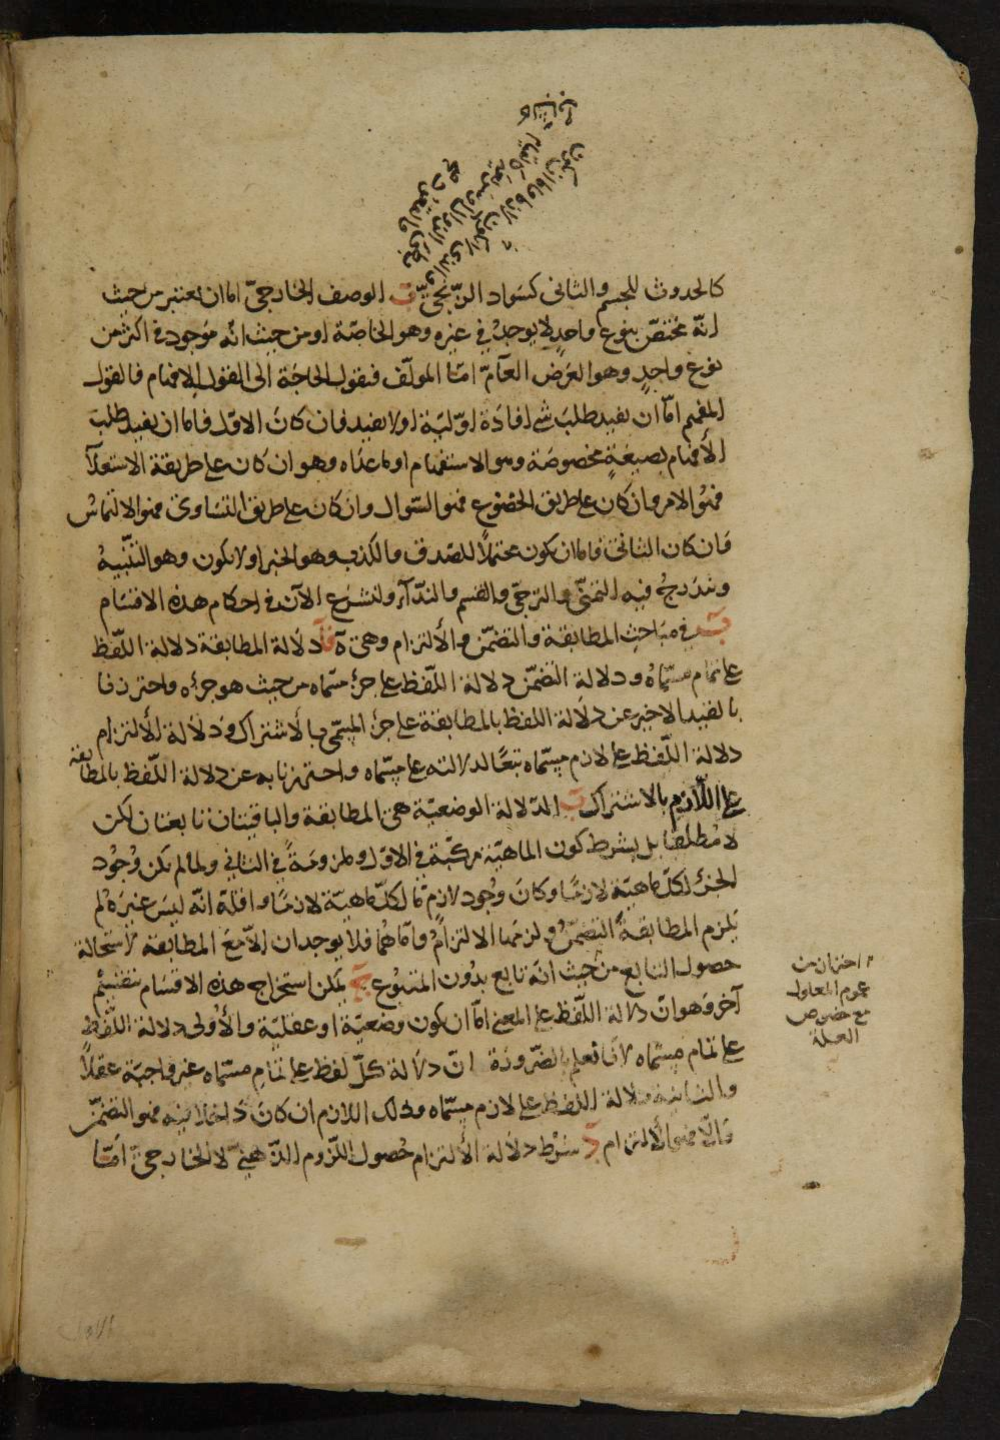 كالحدوث للجسم والثانى كسواد الزنجىّ ب الوصف الخارجىّ اما ان يعتبر من حيث
انّه مختصّ بنوع واحدٍ لا يوجد في غيره وهو الخاصّة او من حيث انّه موجود فى اكثر من
نوع واحدٍ وهو العَرَض العآمّ امّا المولّف فيقول الحاجة الى القول للافهام فالقول
المفهم امّا ان يفيد طلبَ شئ افادة اوّليّة او لا يفيد فان كان الاوّل فاما ان يفيد طلب
الأفهام بصيغةٍ مخصوصة وهو الاستفهام او ما عداه وهو ان كان على طريقة الاستعلآ
فهو الامر وان كان على طريق الخضوع فهو السّوال وان كان على طريق التساوى فهو الالتماسُ
فان كان الثانى فاما ان يكون محتملًا للصدق والكذب وهو الخبر او لا يكون وهو التنبيهُ
ويندرجُ فيه التمنّى والترجّى والقسم والندآء ولنشرع الآن فى احكام هذه الاقسام
فى مباحث المطابقة والتضمّن والألتزام وهى آ دلالة المطابقة دلالة اللّفظ
على تمام مسمّاهُ ودلالة التضمّن دلالة اللّفظ على جزء مسمّاه من حيث هو جزءه واحترزنا
بالقيد الاخير عن دلالة اللفظ بالمطابقة على جزء المسمّى بالأشتراك ودلالة الألتزام
دلالة اللّفظ على لازم مسمّاه تبعًا لدلالته على مسمّاه واحترزنا به عن دلالة اللّفظ بالمطابقة
على اللّازم بالاشتراك ب الدّلالة الوضعيّة هى المطابقة والباقيتان تابعتان لكن
لا مُطلقًا بل بشرط كون الماهيّة مركّبة فى الاوّل وملزومةً فى الثانى ولما لم يكن وُجُود
الجزء لكلّ ماهيّة لازمًا وكان وجُود لازمٍ مّا لكلّ ماهيّة لازمًا واقلّه انّه ليسَ غيرَهُ لم
يلزم المطابقةَ التضمّنُ ولزمَها الالتزامُ وامّا هُما فلا يوجدان الّا مع المطابقة لأستحالة
حصول التابع من حيث انّه تابع بدُون المتبُوع ج يمكن استخراج هذه الاقسام بتقسيمٍ
آخر وهو انّ دلالة اللّفظ على المعنى امّا ان يكون وضعيّة او عقليّة والأولى دلالة اللّفظ
على تمام مسمّاه لانّا نعلم بالضّرورة انّ دلالة كلّ لفظ على تمام مسمّاه غير واجبة عقلًا
والثانية دلالة اللفظ على لازم مسمّاه وذلك اللازم ان كان داخلا فيه فهو التضمّن
والّا فهو الألتزام د شرط دلالة الألتزام حُصول اللّزوم الذهنىّ لا الخارجىّ امّا
احتراز من
عموم المعلول
مع خصوص
العلة